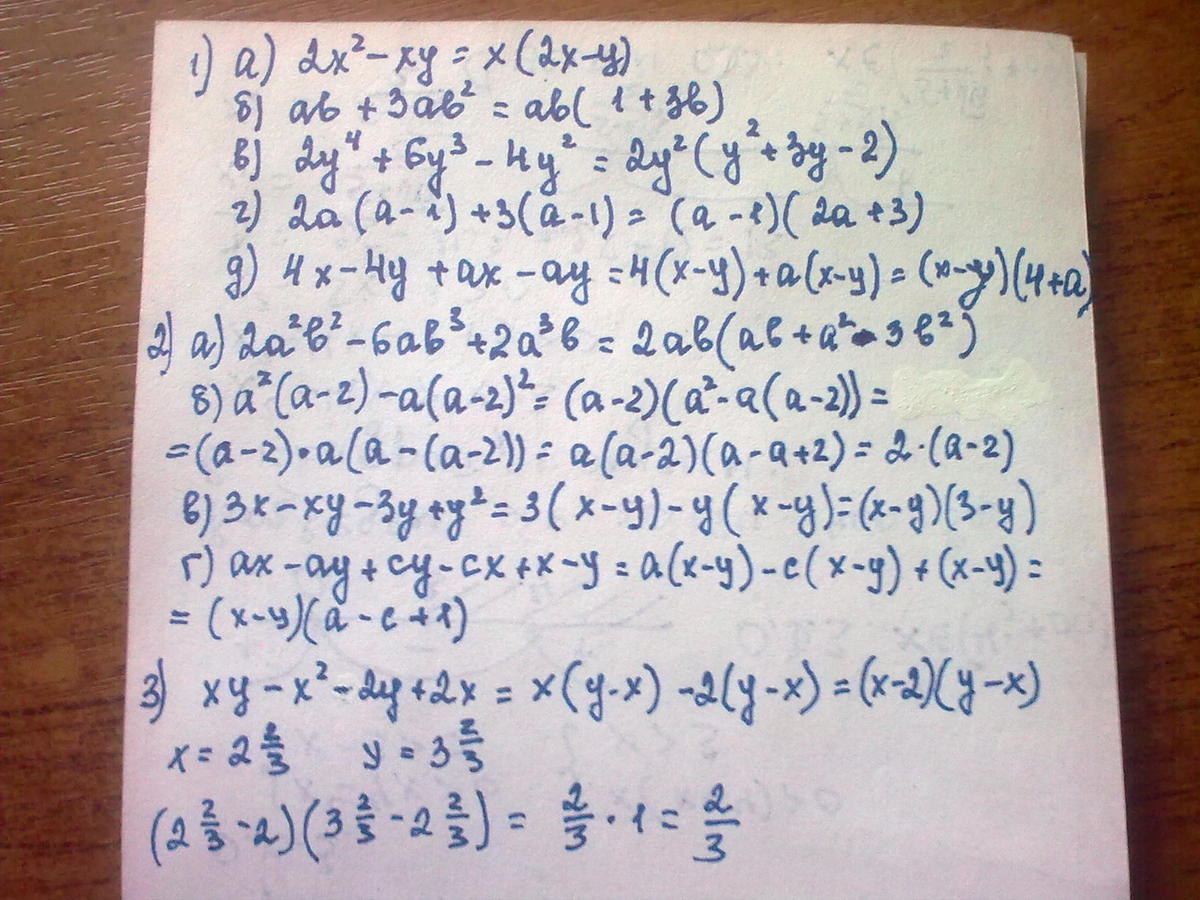 1) а) 2x² - xy = x(2x-y)
б) ab + 3ab² = ab(1 + 3b)
в) 2y⁴ + 6y³ - 4y² = 2y²(y² + 3y - 2)
г) 2a(a-1) + 3(a-1) = (a-1)(2a+3)
д) 4x - 4y + ax - ay = 4(x-y) + a(x-y) = (x-y)(4+a)
2) а) 2a²b² - 6ab³ + 2a³b = 2ab(ab + a² - 3b²)
б) a²(a-2) - a(a-2)² = (a-2)(a² - a(a-2)) =
= (a-2)·a(a-(a-2)) = a(a-2)(a-a+2) = 2·(a-2)
в) 3x - xy - 3y + y² = 3(x-y) - y(x-y) = (x-y)(3-y)
г) ax - ay + cy - cx + x - y = a(x-y) - c(x-y) + (x-y) =
= (x-y)(a - c + 1)
3) xy - x² - 2y + 2x = x(y-x) - 2(y-x) = (x-2)(y-x)
x = 2 2/3 y = 3 2/3
(2 2/3 - 2)(3 2/3 - 2 2/3) = 2/3 · 1 = 2/3